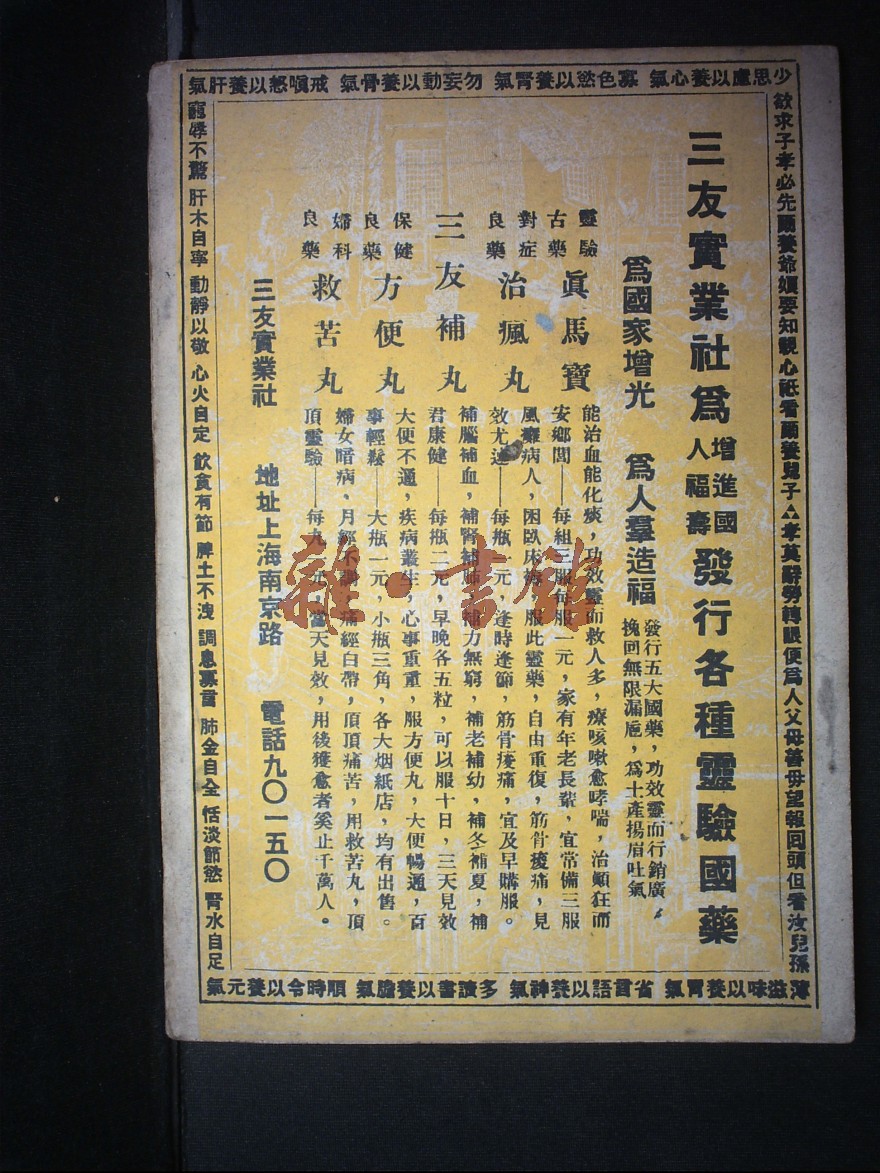 少思慮以養心氣 寡色慾以養腎氣 勿妄動以養骨氣 戒嗔怒以養肝氣
欲求子孝必先爾養爺孃要知親心祗看爾養兒子△孝莫辭勞轉眼便爲人父母善毋望報回頭但看汝兒孫
三友實業社爲增進國人福壽發行各種靈驗國藥
爲國家增光 爲人羣造福
發行五大國藥，功效靈而行銷廣，
挽回無限漏巵，爲土產揚眉吐氣
靈驗古藥 眞馬寶
能治血能化痰，功效靈而救人多，療咳嗽愈哮喘，治顛狂而
安鄉閭——每組三服每服一元，家有年老長輩，宜常備三服
對症良藥 治瘋丸
風癱病人，困臥床，服此靈藥，自由重復，筋骨痠痛，見
效尤速——每瓶一元，逢時逢節，筋骨痠痛，宜及早購服。
三友補丸
補腦補血，補腎補肺，補力無窮，補老補幼，補冬補夏，補
君康健——每瓶二元，早晚各五粒，可以服十日，三天見效
保健良藥 方便丸
大便不通，疾病叢生，心事重重，服方便丸，大便暢通，百
事輕鬆——大瓶一元，小瓶三角，各大烟紙店，均有出售。
婦科良藥 救苦丸
婦女暗病，月經不調，痛經白帶，頂頂痛苦，用救苦丸，頂
頂靈驗——每丸一元，當天見效，用後獲愈者奚止千萬人。
三友實業社 地址上海南京路 電話九〇一五〇
寵辱不驚 肝木自寧 動靜以敬 心火自定 飲食有節 脾土不洩 調息寡言 肺金自全 恬淡節慾 腎水自足
薄滋味以養胃氣 省言語以養神氣 多讀書以養膽氣 順時令以養元氣
雜·書館